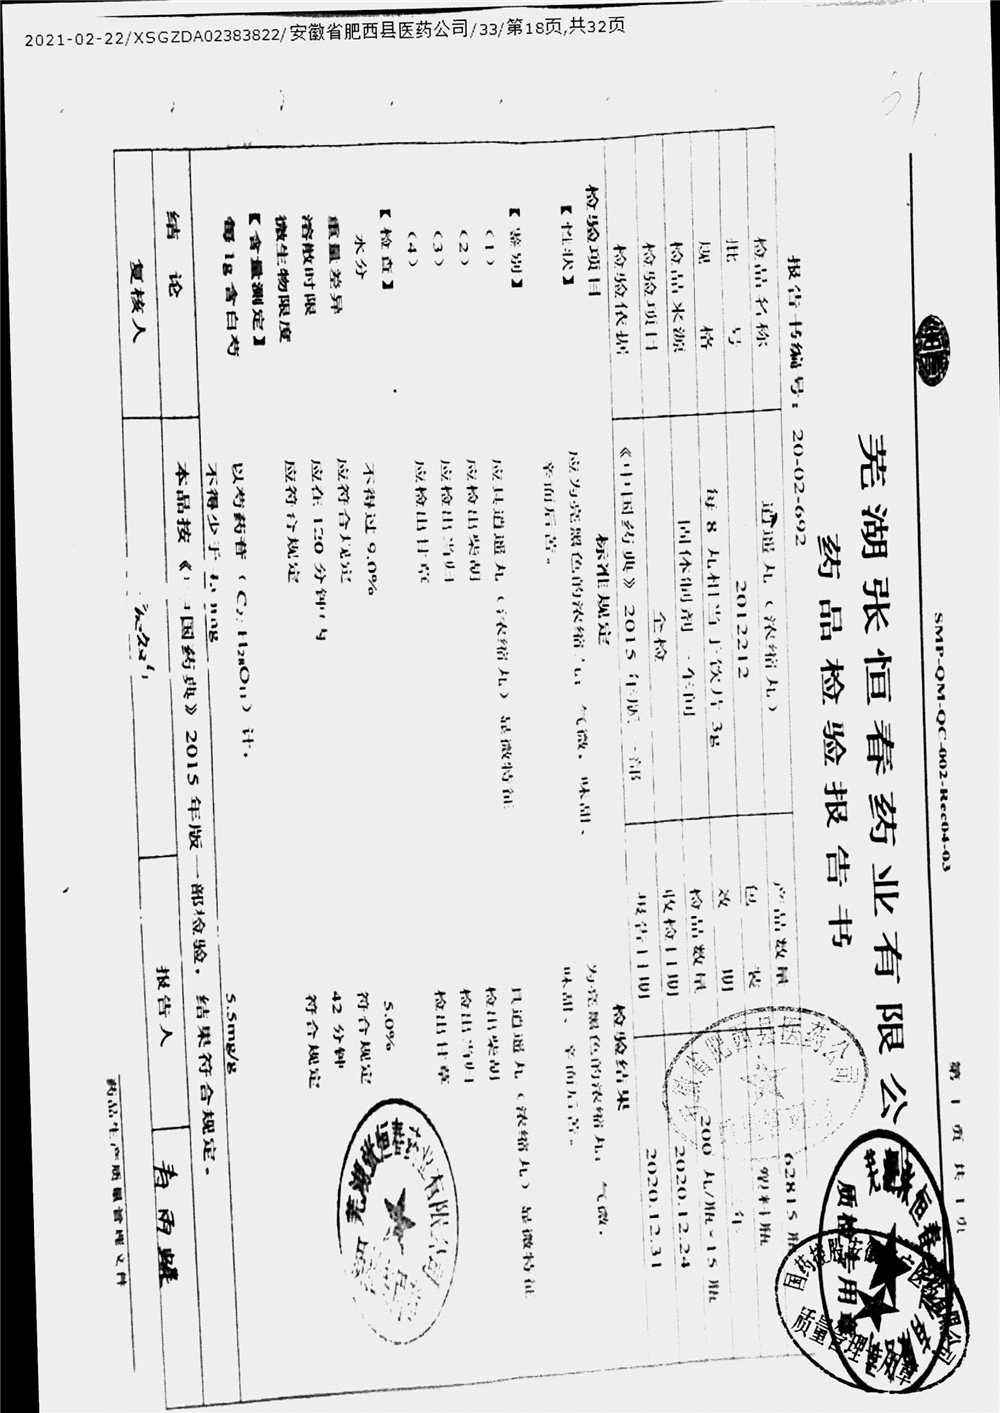 2021-02-22/XSGZDA02383822/安徽省肥西县医药公司/33/第18页,共32页
SMP-QM-QC-002-Rec04-03
第 1 页 共 1 页
芜湖张恒春药业有限公
药品检验报告书
报告书编号: 20-02-692
检品名称 逍遥丸(浓缩丸) 产品数量 62815瓶
批号 2012212 包装 塑料瓶
规格 每8丸相当于饮片3g 效期
检品来源 固体制剂一车间 检品数量 200丸/瓶×15瓶
检验项目 全检 收检日期 2020.12.24
检验依据 《中国药典》2015年版一部 报告日期 2020.12.31
检验项目 标准规定 检验结果
【性状】 应为亮黑色的浓缩丸,气微,味甜、辛而后苦。 为亮黑色的浓缩丸,气微,味甜、辛而后苦。
【鉴别】
(1) 应具逍遥丸(浓缩丸)显微特征 具逍遥丸(浓缩丸)显微特征
(2) 应检出柴胡 检出柴胡
(3) 应检出当归 检出当归
(4) 应检出甘草 检出甘草
【检查】
水分 不得过9.0% 5.0%
重量差异 应符合规定 符合规定
溶散时限 应在120分钟内 42分钟
微生物限度 应符合规定 符合规定
【含量测定】
每1g含白芍 以芍药苷(C₂₃H₂₈O₁₁)计,
不得少于 mg 5.5mg/g
结论 本品按《中国药典》2015年版一部检验,结果符合规定。
复核人 报告人
药品生产质量管理文件
安徽省肥西县医药公司
质检专用章
质量管理专用章